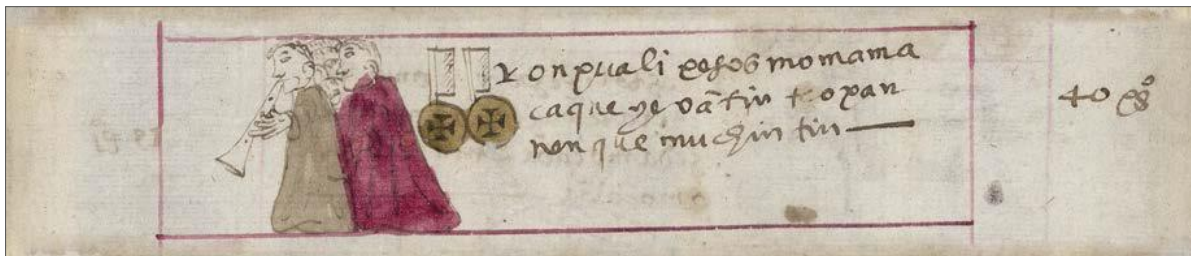 yonpuali pesos momama
caque yevātin teopan
nenque muchintin
40 pºs